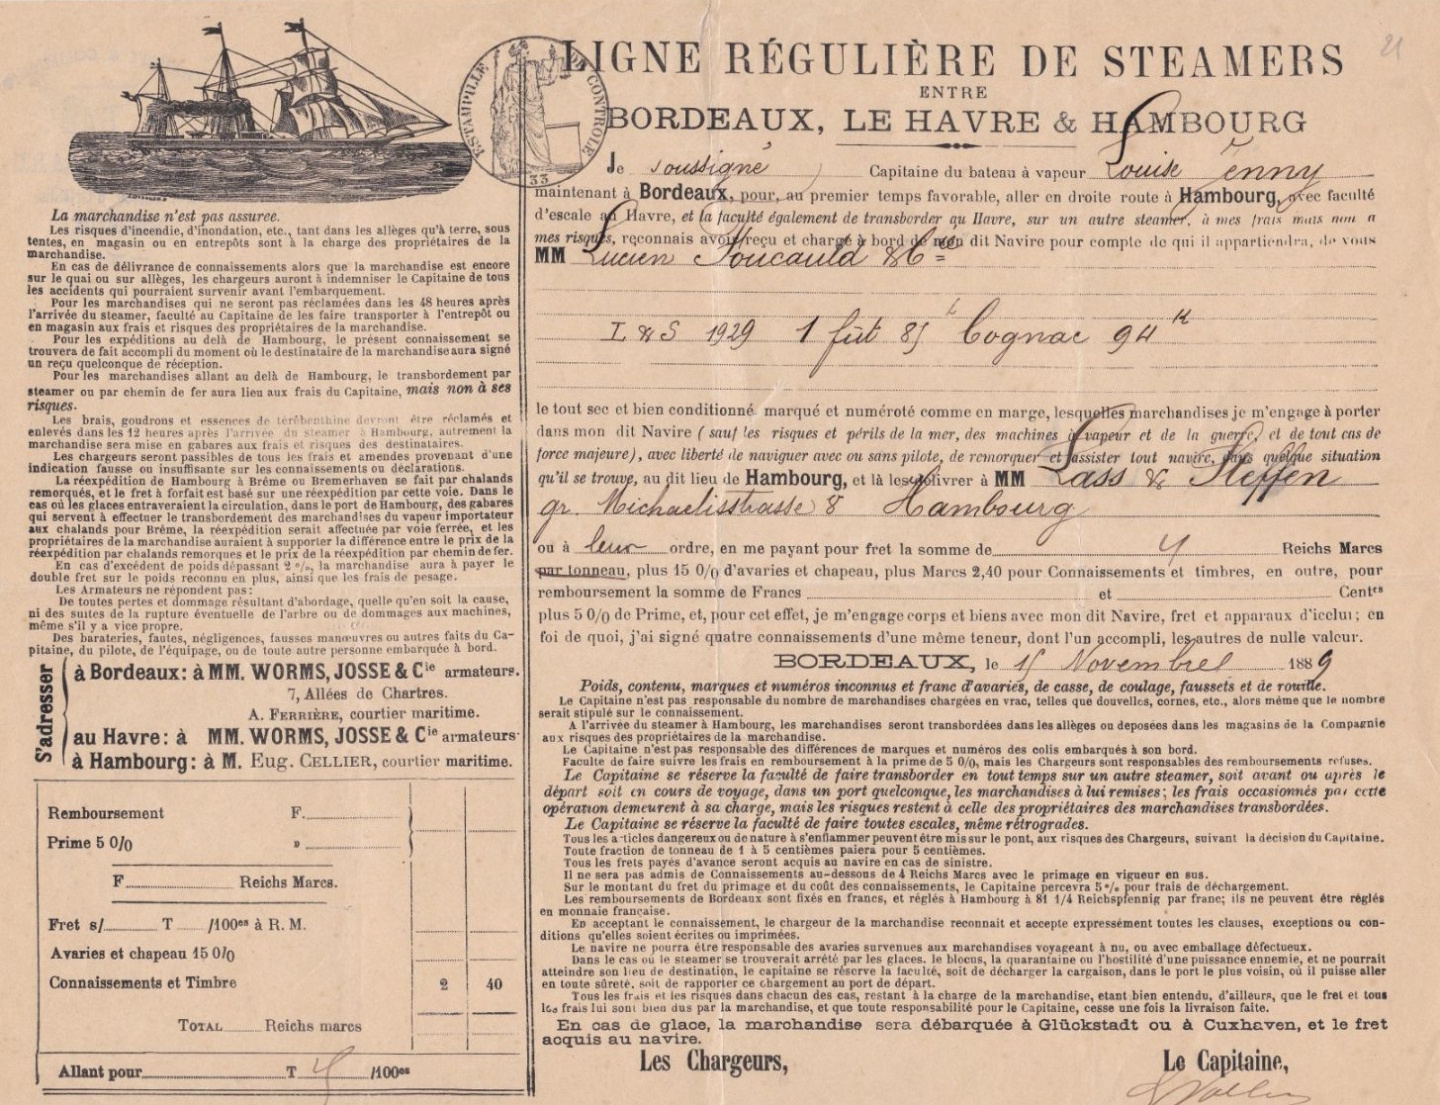 LIGNE RÉGULIÈRE DE STEAMERS
ENTRE
BORDEAUX, LE HAVRE & HAMBOURG
ESTAMPILLE DE CONTROLE
33
21
Je soussigné Capitaine du bateau à vapeur Louise Jenny
maintenant à Bordeaux, pour, au premier temps favorable, aller en droite route à Hambourg, avec faculté
d'escale au Havre, et la faculté également de transborder au Havre, sur un autre steamer, à mes frais mais non a
mes risques, reconnais avoir reçu et chargé à bord de mon dit Navire pour compte de qui il appartiendra, de vous
MM Lucien Foucauld & Cie
L & S 1929 1 fût 85 L Cognac 94 K
le tout sec et bien conditionné marqué et numéroté comme en marge, lesquelles marchandises je m'engage à porter
dans mon dit Navire (sauf les risques et périls de la mer, des machines à vapeur et de la guerre, et de tout cas de
force majeure), avec liberté de naviguer avec ou sans pilote, de remorquer et assister tout navire, dans quelque situation
qu'il se trouve, au dit lieu de Hambourg, et là les délivrer à MM Lass & Steffen
gr. Michaelisstrasse 8 Hambourg
ou à leur ordre, en me payant pour fret la somme de 4 Reichs Marcs
par tonneau, plus 15 0/0 d'avaries et chapeau, plus Marcs 2,40 pour Connaissements et timbres, en outre, pour
remboursement la somme de Francs et Centes
plus 5 0/0 de Prime, et, pour cet effet, je m'engage corps et biens avec mon dit Navire, fret et apparaux d'icelui; en
foi de quoi, j'ai signé quatre connaissements d'une même teneur, dont l'un accompli, les autres de nulle valeur.
BORDEAUX, le 15 Novembre 1889
Poids, contenu, marques et numéros inconnus et franc d'avaries, de casse, de coulage, faussets et de rouille.
Le Capitaine n'est pas responsable du nombre de marchandises chargées en vrac, telles que douvelles, cornes, etc., alors même que le nombre
serait stipulé sur le connaissement.
A l'arrivée du steamer à Hambourg, les marchandises seront transbordées dans les allèges ou deposées dans les magasins de la Compagnie
aux risques des propriétaires de la marchandise.
Le Capitaine n'est pas responsable des différences de marques et numéros des colis embarqués à son bord.
Faculte de faire suivre les frais en remboursement à la prime de 5 0/0, mais les Chargeurs sont responsables des remboursements refuses.
Le Capitaine se réserve la faculté de faire transborder en tout temps sur un autre steamer, soit avant ou après le
départ soit en cours de voyage, dans un port quelconque, les marchandises à lui remises; les frais occasionnés par cette
opération demeurent à sa charge, mais les risques restent à celle des propriétaires des marchandises transbordées.
Le Capitaine se réserve la faculté de faire toutes escales, même rétrogrades.
Tous les articles dangereux ou de nature à s'enflammer peuvent être mis sur le pont, aux risques des Chargeurs, suivant la décision du Capitaine.
Toute fraction de tonneau de 1 à 5 centièmes paiera pour 5 centièmes.
Tous les frets payés d'avance seront acquis au navire en cas de sinistre.
Il ne sera pas admis de Connaissements au-dessous de 4 Reichs Marcs avec le primage en vigueur en sus.
Sur le montant du fret du primage et du coût des connaissements, le Capitaine percevra 5 % pour frais de déchargement.
Les remboursements de Bordeaux sont fixés en francs, et réglés à Hambourg à 81 1/4 Reichspfennig par franc; ils ne peuvent être réglés
en monnaie française.
En acceptant le connaissement, le chargeur de la marchandise reconnait et accepte expressément toutes les clauses, exceptions ou con-
ditions qu'elles soient écrites ou imprimées.
Le navire ne pourra être responsable des avaries survenues aux marchandises voyageant à nu, ou avec emballage défectueux.
Dans le cas où le steamer se trouverait arrêté par les glaces, le blocus, la quarantaine ou l'hostilité d'une puissance ennemie, et ne pourrait
atteindre son lieu de destination, le capitaine se réserve la faculté, soit de décharger la cargaison, dans le port le plus voisin, où il puisse aller
en toute sûreté, soit de rapporter ce chargement au port de départ.
Tous les frais et les risques dans chacun des cas, restant à la charge de la marchandise, etant bien entendu, d'ailleurs, que le fret et tous
les frais lui sont bien dus par la marchandise, et que toute responsabilité pour le Capitaine, cesse une fois la livraison faite.
En cas de glace, la marchandise sera débarquée à Glückstadt ou à Cuxhaven, et le fret
acquis au navire.
Les Chargeurs, Le Capitaine,
La marchandise n'est pas assuree.
Les risques d'incendie, d'inondation, etc., tant dans les allèges qu'à terre, sous
tentes, en magasin ou en entrepôts sont à la charge des propriétaires de la
marchandise.
En cas de délivrance de connaissements alors que la marchandise est encore
sur le quai ou sur allèges, les chargeurs auront à indemniser le Capitaine de tous
les accidents qui pourraient survenir avant l'embarquement.
Pour les marchandises qui ne seront pas réclamées dans les 48 heures après
l'arrivée du steamer, faculté au Capitaine de les faire transporter à l'entrepôt ou
en magasin aux frais et risques des propriétaires de la marchandise.
Pour les expéditions au delà de Hambourg, le présent connaissement se
trouvera de fait accompli du moment où le destinataire de la marchandise aura signé
un reçu quelconque de réception.
Pour les marchandises allant au delà de Hambourg, le transbordement par
steamer ou par chemin de fer aura lieu aux frais du Capitaine, mais non à ses
risques.
Les brais, goudrons et essences de térébenthine devront être réclamés et
enlevés dans les 12 heures après l'arrivée du steamer à Hambourg, autrement la
marchandise sera mise en gabares aux frais et risques des destinataires.
Les chargeurs seront passibles de tous les frais et amendes provenant d'une
indication fausse ou insuffisante sur les connaissements ou déclarations.
La réexpédition de Hambourg à Brême ou Bremerhaven se fait par chalands
remorqués, et le fret à forfait est basé sur une réexpédition par cette voie. Dans le
cas où les glaces entraveraient la circulation, dans le port de Hambourg, des gabares
qui servent à effectuer le transbordement des marchandises du vapeur importateur
aux chalands pour Brême, la réexpédition serait affectuée par voie ferrée, et les
propriétaires de la marchandise auraient à supporter la différence entre le prix de la
réexpédition par chalands remorques et le prix de la réexpédition par chemin de fer.
En cas d'excédent de poids dépassant 2 %, la marchandise aura à payer le
double fret sur le poids reconnu en plus, ainsi que les frais de pesage.
Les Armateurs ne répondent pas:
De toutes pertes et dommage résultant d'abordage, quelle qu'en soit la cause,
ni des suites de la rupture éventuelle de l'arbre ou de dommages aux machines,
même s'il y a vice propre.
Des barateries, fautes, négligences, fausses manœuvres ou autres faits du Ca-
pitaine, du pilote, de l'équipage, ou de toute autre personne embarquée à bord.
S'adresser
à Bordeaux: à MM. WORMS, JOSSE & Cie armateurs.
7, Allées de Chartres.
A. FERRIÈRE, courtier maritime.
au Havre: à MM. WORMS, JOSSE & Cie armateurs.
à Hambourg: à M. Eug. CELLIER, courtier maritime.
Remboursement F.
Prime 5 0/0 »
F Reichs Marcs.
Fret s/ T /100es à R. M.
Avaries et chapeau 15 0/0
Connaissements et Timbre 2 40
TOTAL Reichs marcs
Allant pour T /100es